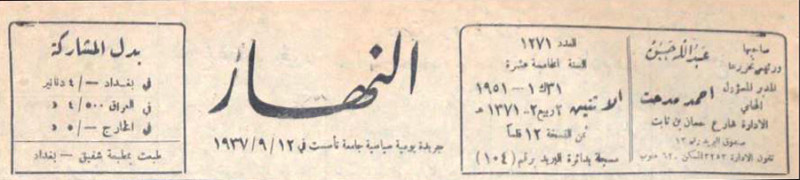 صاحبها
ورئيس تحريرها
المدير المسؤول
احمد مدحت
المحامي
الادارة شارع حسان بن ثابت
صندوق البريد رقم ١٣
العدد ١٢٧١
السنة الخامسة عشرة
٣١ ك ١ – ١٩٥١
الاثنين ٢ ربيع ٢ – ١٣٧١ هـ
ثمن النسخة ١٢ فلساً
مسجلة بدائرة البريد برقم (١٠٤)
النهار
جريدة يومية سياسية جامعة تأسست في ١٢ / ٩ / ١٩٣٧
بدل المشاركة
في بغداد –/٤ دنانير
في العراق ٥٠٠/٤ د
في الخارج –/٥ د
طبعت بمطبعة شفيق – بغداد